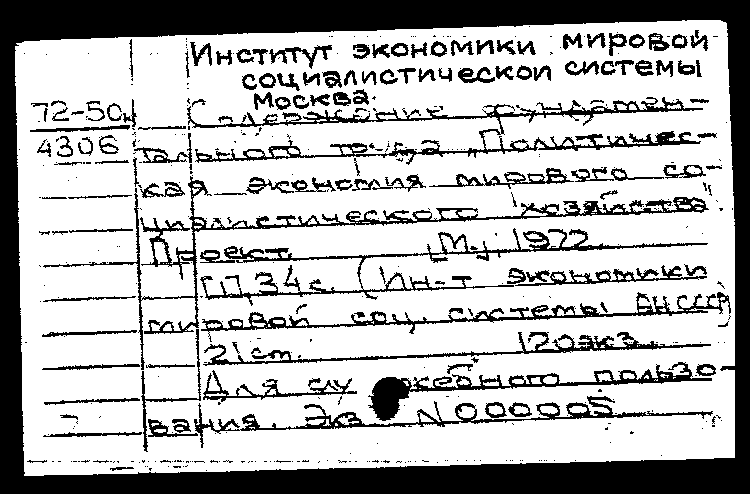 Институт экономики мировой
социалистической системы
Москва.
72-50к Содержание фундамен-
4306 тального труда „Политичес-
кая экономия мирового со-
циалистического хозяйства".
Проект. [М.], 1972.
[1], 34 с. (Ин-т экономики
мировой соц. системы АН СССР)
21 см. 120 экз.
Для служебного пользо-
вания. Экз. N 000005